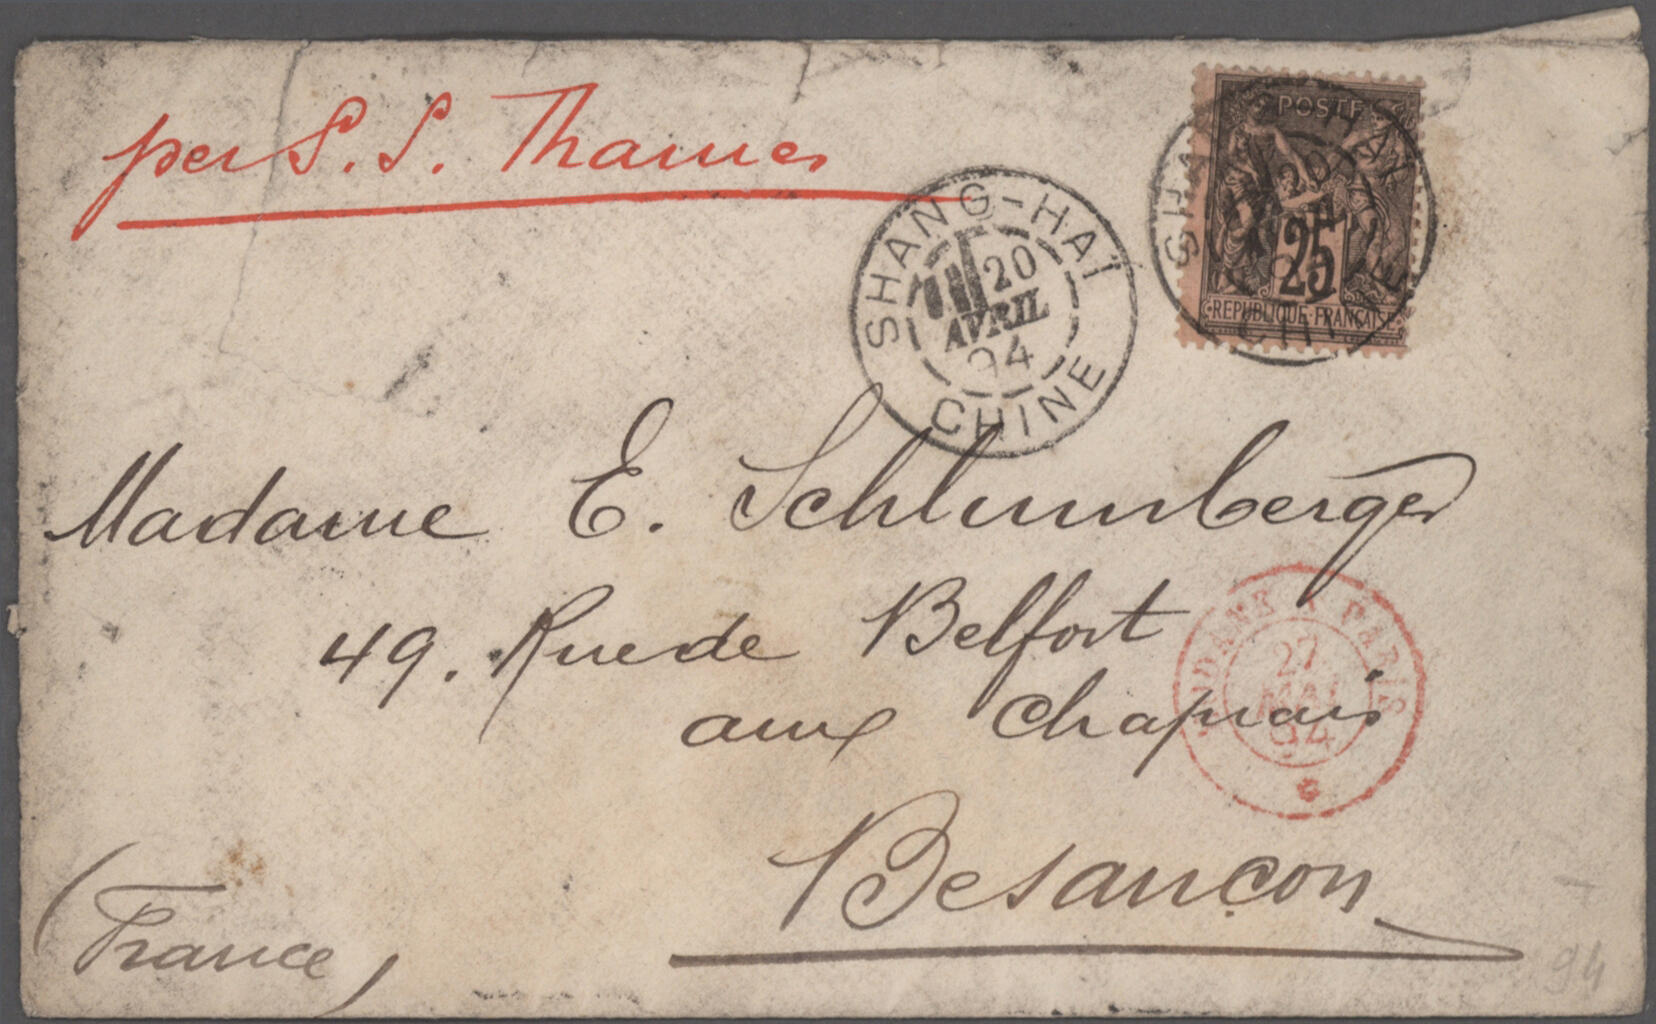 per S. S. Thames
SHANG-HAÏ
20
AVRIL
94
CHINE
POSTE
25
REPUBLIQUE FRANÇAISE
SHANG-HAÏ
CHINE
Madame E. Schlumberger
49. Rue de Belfort
aux Chaprais
MODANE A PARIS
27
MAI
94
Besançon
(France)
94